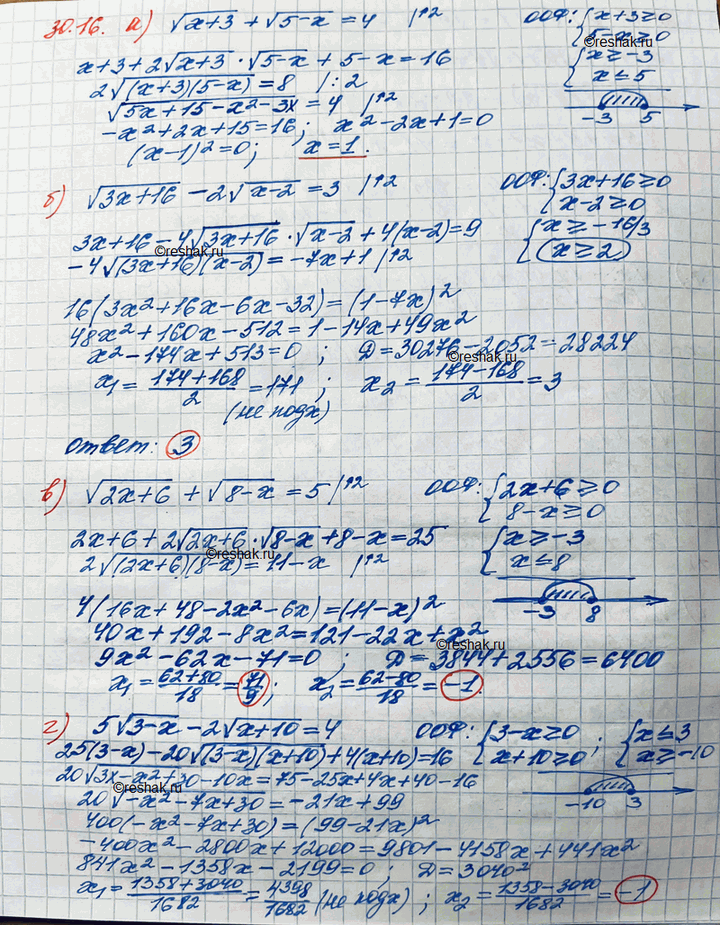 30.16. а) √(x+3) + √(5-x) = 4 |↑2 ООФ: { x+3≥0
5-x≥0
x+3+2√(x+3)·√(5-x) + 5-x=16 { x≥-3
x≤5
2√((x+3)(5-x)) = 8 |:2
√(5x+15-x²-3x) = 4 |↑2 -3 5
-x²+2x+15=16; x²-2x+1=0
(x-1)²=0; x=1.
б) √(3x+16) - 2√(x-2) = 3 |↑2 ООФ: { 3x+16≥0
x-2≥0
3x+16-4√(3x+16)·√(x-2)+4(x-2)=9 { x≥-16/3
x≥2
©reshak.ru
-4√((3x+16)(x-2)) = -7x+1 |↑2
16(3x²+16x-6x-32)=(1-7x)²
48x²+160x-512=1-14x+49x²
x²-174x+513=0 ; D=30276-2052=28224
©reshak.ru
x₁ = (174+168)/2 = 171 ; x₂ = (174-168)/2 = 3
(не подх)
ответ: 3
в) √(2x+6) + √(8-x) = 5 |↑2 ООФ: { 2x+6≥0
8-x≥0
2x+6+2√(2x+6)·√(8-x)+8-x=25 { x≥-3
x≤8
©reshak.ru
2√((2x+6)(8-x)) = 11-x |↑2
4(16x+48-2x²-6x)=(11-x)² -3 8
40x+192-8x²=121-22x+x²
©reshak.ru
9x²-62x-71=0 ; D=3844+2556=6400
x₁ = (62+80)/18 = 71/9 ; x₂ = (62-80)/18 = -1.
г) 5√(3-x) - 2√(x+10) = 4 ООФ: { 3-x≥0 ; { x≤3
x+10≥0 x≥-10
25(3-x)-20√((3-x)(x+10))+4(x+10)=16
20√(3x-x²+30-10x)=75-25x+4x+40-16
©reshak.ru
20√(-x²-7x+30) = -21x+99 -10 3
400(-x²-7x+30)=(99-21x)²
-400x²-2800x+12000=9801-4158x+441x²
841x²-1358x-2199=0 ; D=3040²
x₁ = (1358+3040)/1682 = 4398/1682 (не подх) ; x₂ = (1358-3040)/1682 = -1
©reshak.ru